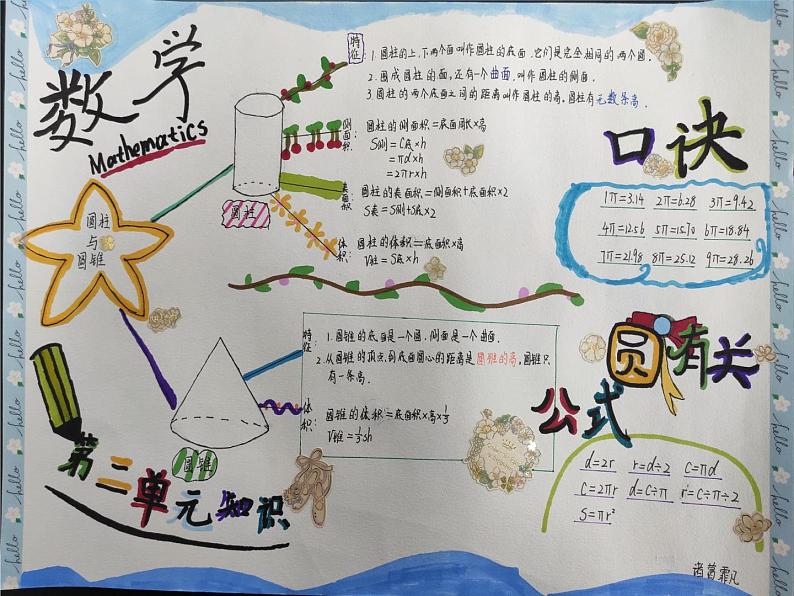 数学
Mathematics
圆柱
与
圆锥
圆柱
特征:
1. 圆柱的上、下两个面叫作圆柱的底面,它们是完全相同的两个圆.
2. 围成圆柱的面,还有一个曲面,叫作圆柱的侧面.
3. 圆柱的两个底面之间的距离叫作圆柱的高,圆柱有无数条高.
侧面积:
圆柱的侧面积=底面周长×高
S侧=C底×h
=πd×h
=2πr×h
表面积:
圆柱的表面积=侧面积+底面积×2
S表=S侧+S底×2
体积:
圆柱的体积=底面积×高
V柱=S底×h
圆锥
特征:
1. 圆锥的底面是一个圆,侧面是一个曲面.
2. 从圆锥的顶点到底面圆心的距离是圆锥的高,圆锥只
有一条高.
体积:
圆锥的体积=底面积×高×1/3
V锥=1/3sh
第二单元知识
口诀
1π=3.14 2π=6.28 3π=9.42
4π=12.56 5π=15.70 6π=18.84
7π=21.98 8π=25.12 9π=28.26
圆有关
公式
d=2r r=d÷2 C=πd
C=2πr d=C÷π r=C÷π÷2
S=πr²
诸葛霏凡
hello
hello
hello
hello
hello
hello
hello
hello
hello
hello
hello
hello